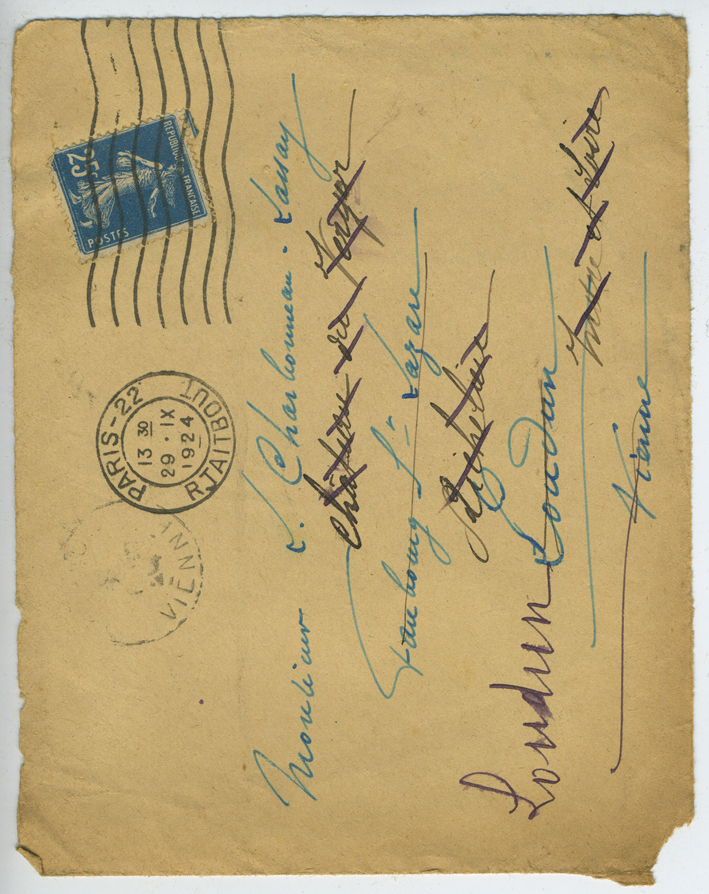 REPUBLIQUE FRANÇAISE
25
POSTES
PARIS-22
13 30
29 · IX
1924
R. TAITBOUT
VIENNE
Monsieur L. Charbonneau-Lassay
Château du
Faubourg St Lazare
Richelieu
Loudun Loudun
Indre et Loire
Vienne